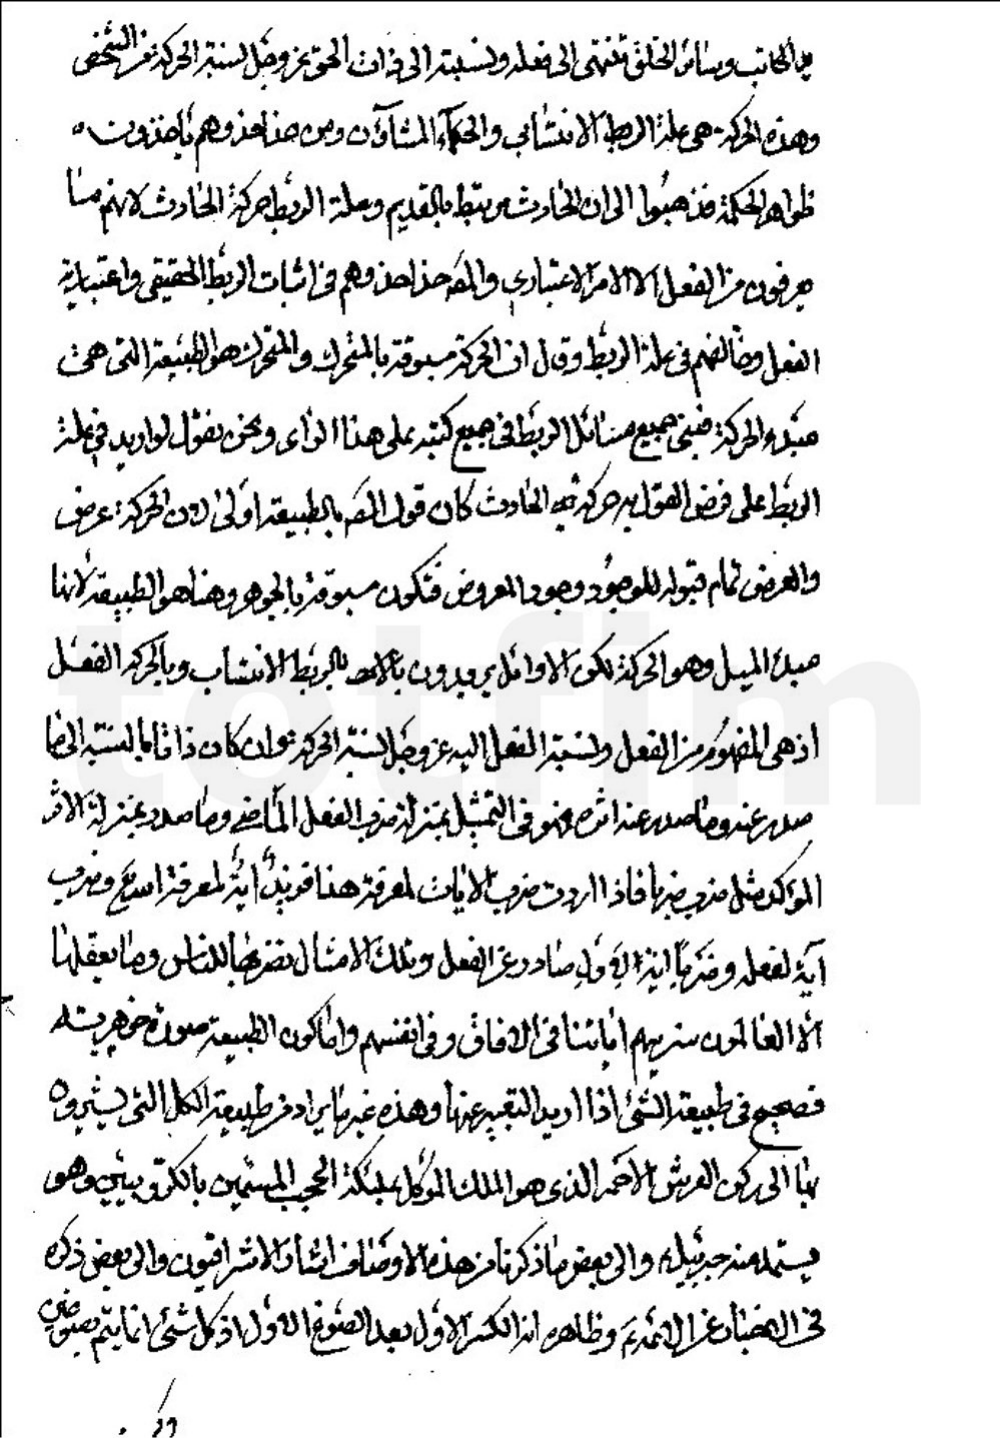 يد الكاتب وسائر الخلق تنتهى الى فعله ونسبته الى ذات الحق عز وجل نسبة الحركة من الشخص
وهذه الحركة هى علة الربط الانتسابى والحكماء المشاؤن ومن حذا حذوهم يأخذون
ظواهر الحكمة فذهبوا الى ان الحادث مرتبط بالقديم وعلة الربط حركة الحادث لانهم ما
يعرفون من الفعل الا الامر الاعتبارى والمص حذا حذوهم فى اثبات الربط الحقيقى واعتبارية
الفعل وخالفهم فى علة الربط وقال ان الحركة مسبوقة بالمتحرك والمتحرك هو الطبيعة التى هى
مبدء الحركة فبنى جميع مسائل الربط فى جميع كتبه على هذا الرأى ونحن نقول لو اريد فى علة
الربط على فرض القول به حركة الحادث كان قول المص بالطبيعة اولى لان الحركة عرض
والعرض تمام قبوله للوجود وجود المعروض فتكون مسبوقة بالجوهر وهنا هو الطبيعة لانها
مبدء الميل وهو الحركة لكن الاوائل يريدون بالربط الانتساب وبالحركة الفعل
اذ هى المفهوم من الفعل ونسبة الفعل اليه عز وجل نسبة الحركة وان كان ذاتا بالنسبة الى ما
صدر عنه وما صدر عنه اثره فهو فى التمثيل بمنزلة ضرب الفعل الماضى وما صدر بمنزلة الاثر
المؤكد مثل ضرب ضربا فاذا اردت ضرب الايات لمعرفة هذا فزيد آية لمعرفة الله وضرب
آية لفعله وضربا آية الاول صادر عن الفعل وتلك الامثال نضربها للناس وما يعقلها
الا العالمون سنريهم اياتنا فى الافاق وفى انفسهم واما كون الطبيعة صورة جوهرية
فصحيح فى طبيعة الشئ اذا اريد التعبير عنها وهذه غير ما يراد من طبيعة الكل التى يشيرون
بها الى ركن العرش الاحمر الذى هو الملك الموكل بملئكة الحجب المسمين بالكروبيين وهو
يستمد منه جبرئيل والى بعض ما ذكرنا من هذه الاوصاف اشار الاشراقيون والى بعض ذكره
فى الاخبار عن الائمة وظاهره انه الكسر الاول بعد الصوغ الاول اذ كل شئ انما يتم بصوغين